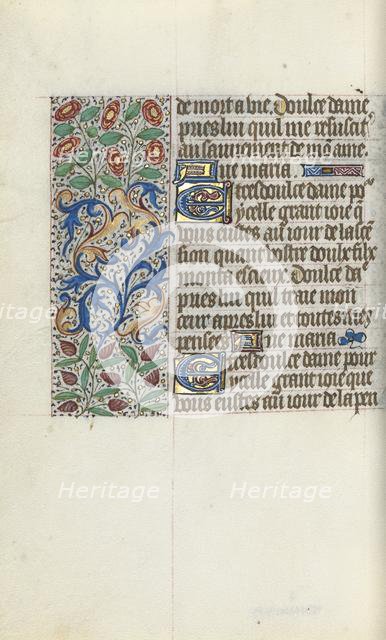 de mort a vie. Doulce dame
pries lui quil me resuscit
au sauuement de mo ame
Aue maria
Tresdoulce dame po
ycelle grant ioie q
vous eustes au iour de lasce
sion quant vostre doulx filz
monta es cieux. Doulce da
pries lui quil traie mon
cuer apres lui et toutes
penses. Aue maria
Tresdoulce dame pour
ycelle grant ioie que
vous eustes au iour de la pen
Heritage Heritage Heritage
Heritage Heritage